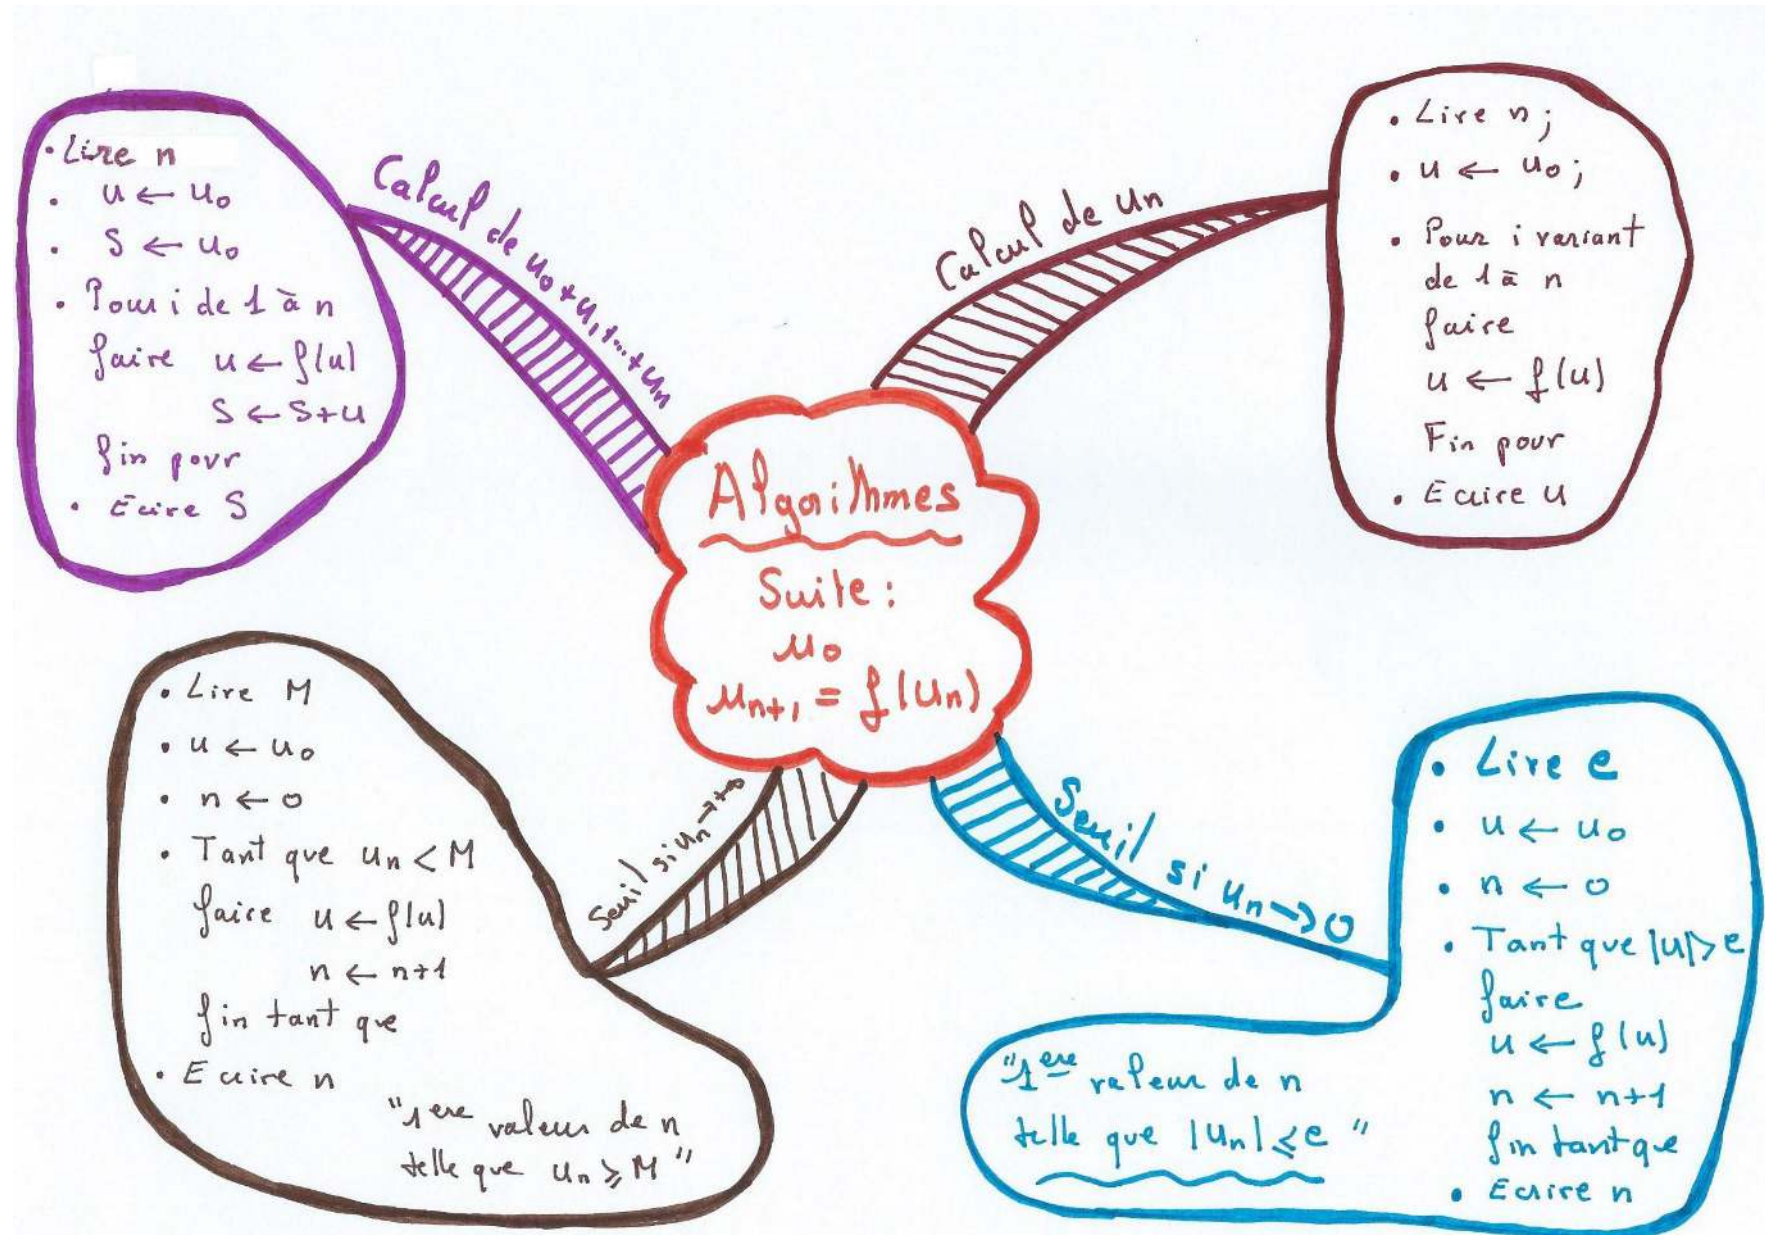 Algorithmes
Suite :
u₀
uₙ₊₁ = f(uₙ)
Calcul de u₀+u₁+...+uₙ
• Lire n
• u ← u₀
• S ← u₀
• Pour i de 1 à n
faire u ← f(u)
S ← S+u
fin pour
• Ecrire S
Calcul de uₙ
• Lire n ;
• u ← u₀ ;
• Pour i variant
de 1 à n
faire
u ← f(u)
Fin pour
• Ecrire u
Seuil si uₙ → +∞
• Lire M
• u ← u₀
• n ← 0
• Tant que uₙ < M
faire u ← f(u)
n ← n+1
fin tant que
• Ecrire n
"1ere valeur de n
telle que uₙ ⩾ M"
Seuil si uₙ → 0
• Lire e
• u ← u₀
• n ← 0
• Tant que |u|>e
faire
u ← f(u)
n ← n+1
fin tant que
• Ecrire n
"1ere valeur de n
telle que |uₙ| ⩽ e"